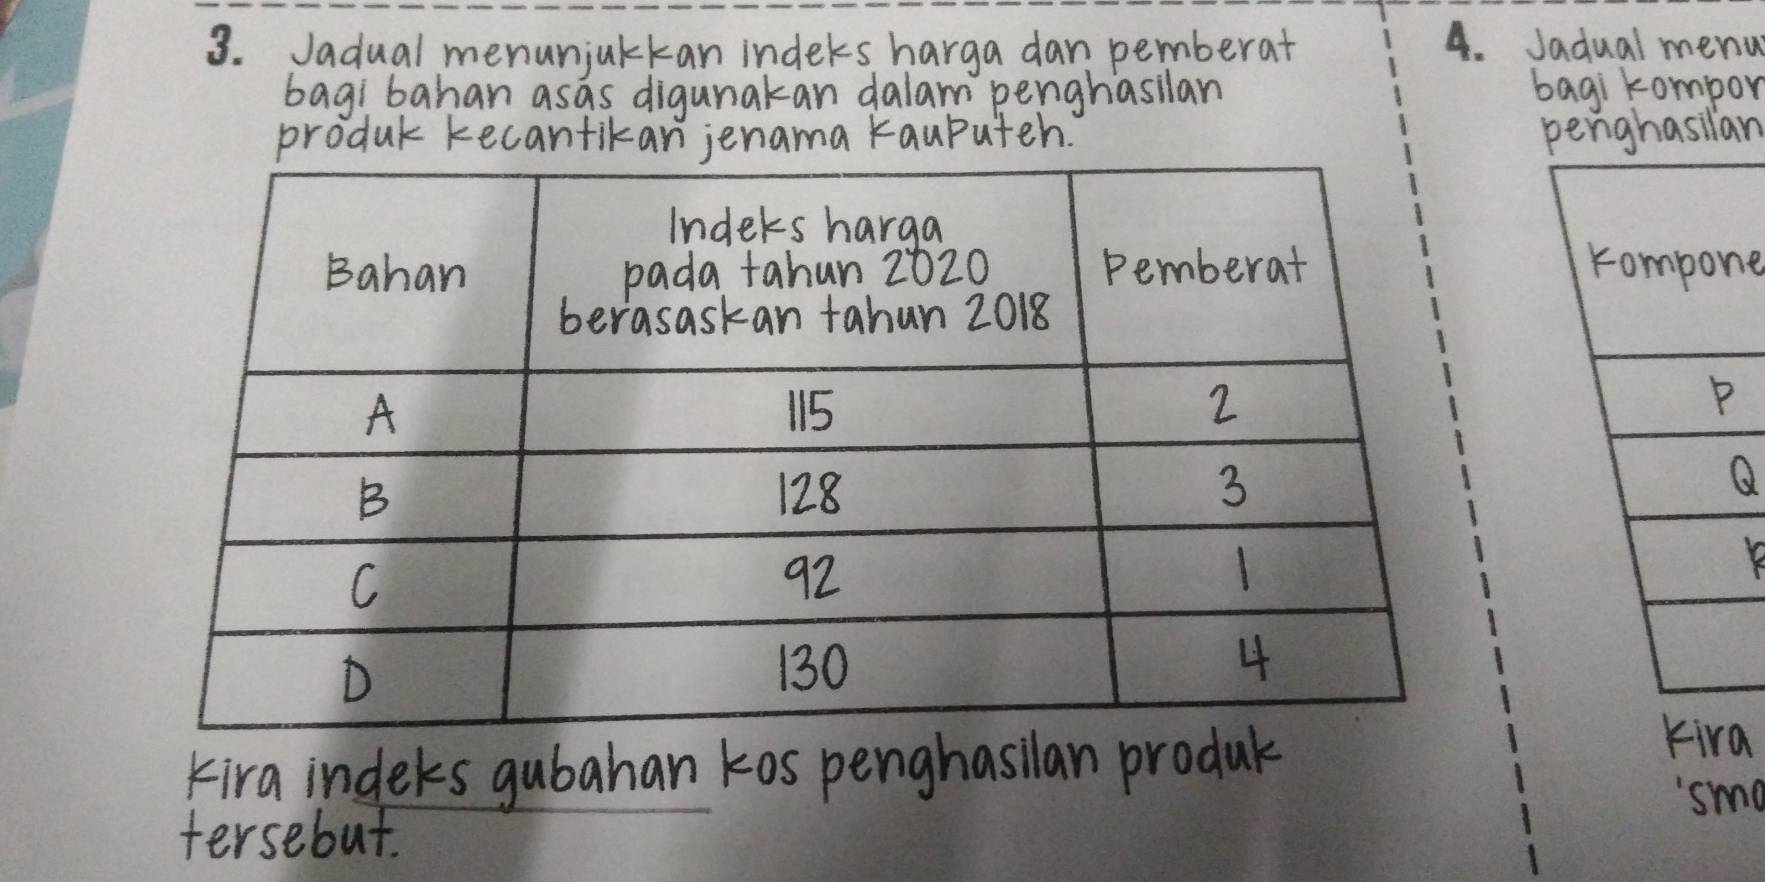 3. Jadual menunjukkan indeks harga dan pemberat
bagi bahan asas digunakan dalam penghasilan
produk kecantikan jenama KauPuteh.
Bahan
Indeks harga
pada tahun 2020
berasaskan tahun 2018
Pemberat
A 115 2
B 128 3
C 92 1
D 130 4
Kira indeks gubahan kos penghasilan produk
tersebut.
4. Jadual menu
bagi kompon
penghasilan
Kompone
P
Q
R
Kira
'sma